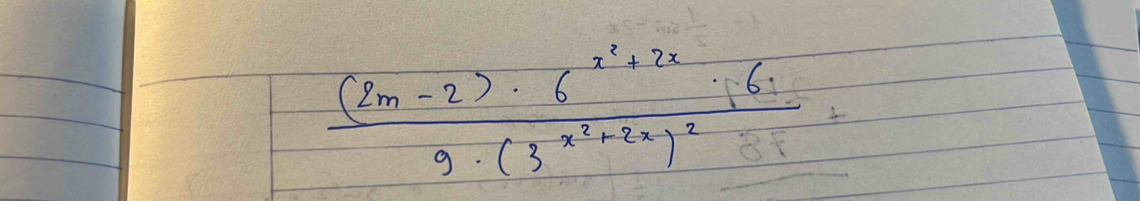 (2m - 2) · 6^{x² + 2x} · 6
9 · (3^{x² + 2x})²